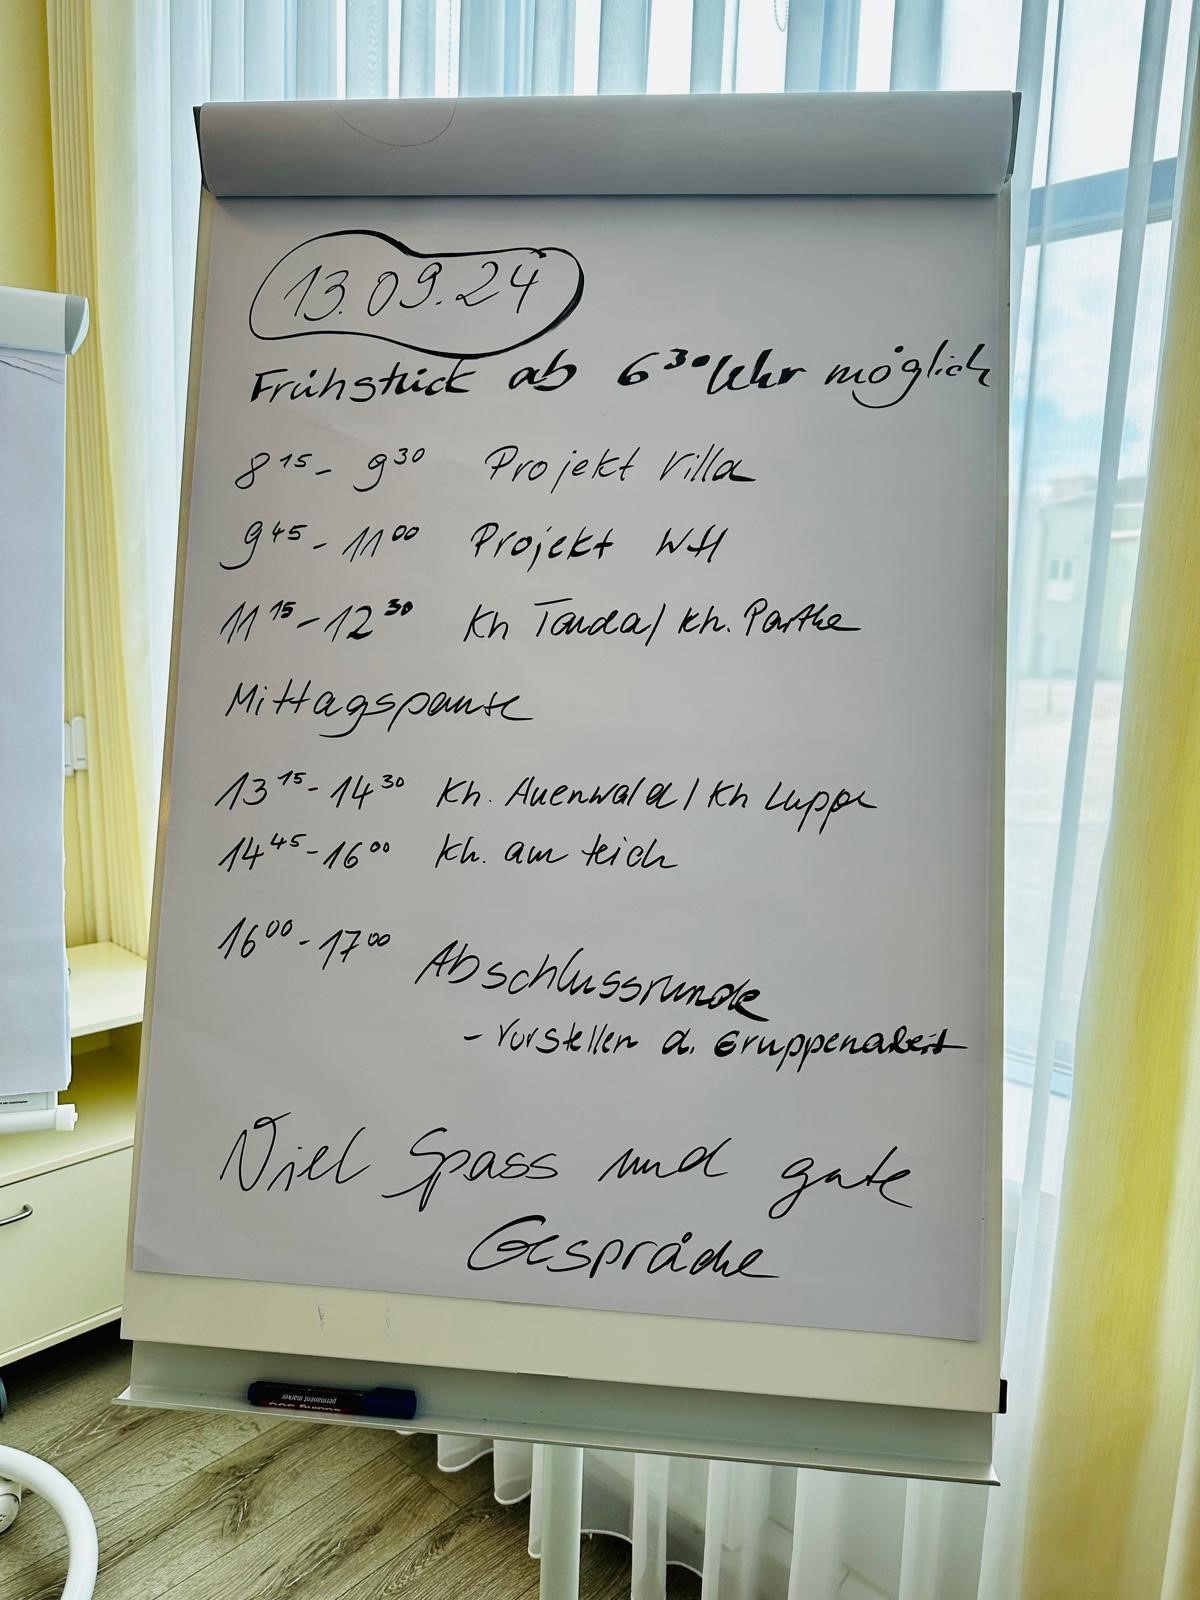 13.09.24
Frühstück ab 6³⁰ Uhr möglich
8¹⁵ - 9³⁰ Projekt Villa
9⁴⁵ - 11⁰⁰ Projekt WH
11¹⁵ - 12³⁰ Kh Tauda / Kh. Parthe
Mittagspause
13¹⁵ - 14³⁰ Kh. Auenwald / Kh Luppe
14⁴⁵ - 16⁰⁰ Kh. am Teich
16⁰⁰ - 17⁰⁰ Abschlussrunde
- Vorstellen d. Gruppenarbeit
Viel Spass und gute
Gespräche
permanent marker